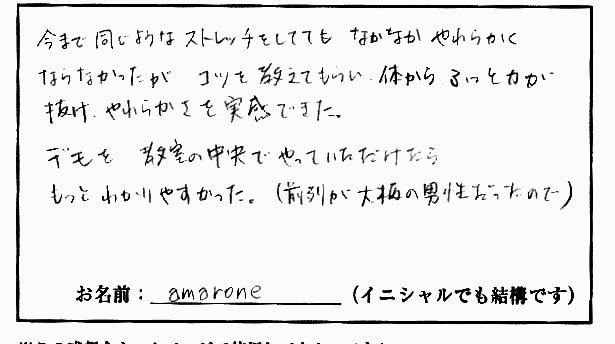 今まで同じようなストレッチをしてても なかなか やわらかく
ならなかったが コツを教えてもらい、体から ふっと力が
抜け、やわらかさを実感できた。
デモを 教室の中央で やっていただけたら
もっと わかりやすかった。(前列が大柄の男性だったので)
お名前： amarone （イニシャルでも結構です）